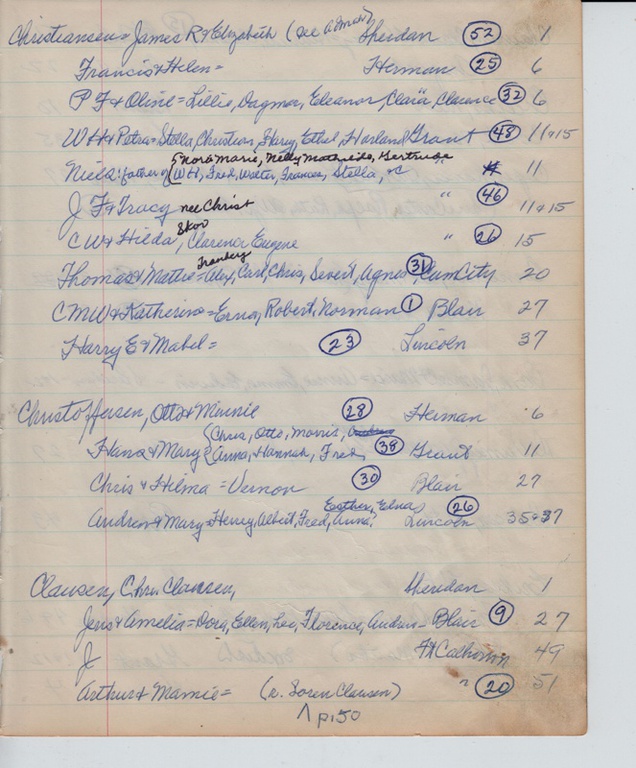 Christiansen = James R & Elizabeth (see Admah) Sheridan 52 1
Francis & Helen = Herman 25 6
P F & Oline = Lillie, Dagmar, Eleanor, Clara, Clarence 32 6
W H & Petra = Stella, Christian, Harry, Ethel, Harland Grant 48 11 & 15
Nora Marie, Nelly Mathilde, Gertrude
Niels: father of { W H, Fred, Walter, Frances, Stella, " 11
J F & Tracy nee Christ " 46 11 & 15
Skov
C W & Hilda, Clarence Eugene " 26 15
Tranberg
Thomas & Mattie = Alex, Carl, Chris, Severt, Agnes, 31 Cum City 20
CMW & Katherine = Erna, Robert, Norman 1 Blair 27
Harry E & Mabel = 23 Lincoln 37
Christoffersen, Otto & Minnie 28 Herman 6
Hans & Mary { Chris, Otto, Morris,
Anna, Hannah, Fred 38 Grant 11
Chris & Hilma = Vernon 30 Blair 27
Esther, Edna
Andrew & Mary = Henry, Albert, Fred, Anna, 26 Lincoln 35 & 37
Clausen, Chris Clausen, Sheridan 1
Jens & Amelia = Dora, Ellen, Leo, Florence, Andrew - Blair 9 27
J Ft Calhoun 49
Arthur & Mamie = (r. Soren Clausen) " 20 51
p. 50